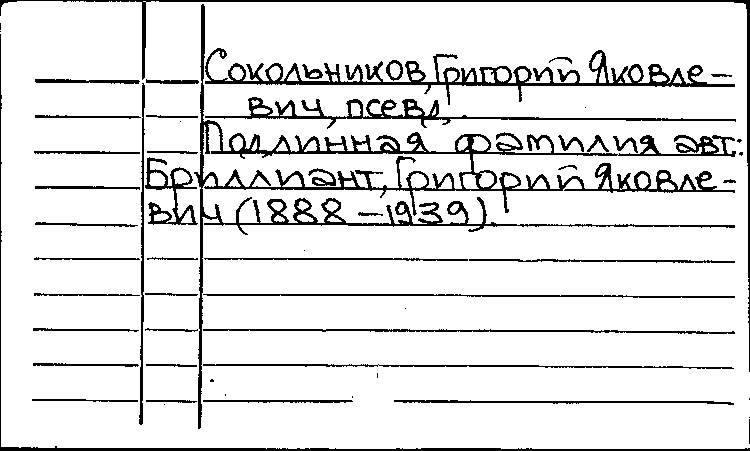 Сокольников, Григорий Яковле-
вич, псевд.
Подлинная фамилия авт.:
Бриллиант, Григорий Яковле-
вич (1888-1939).